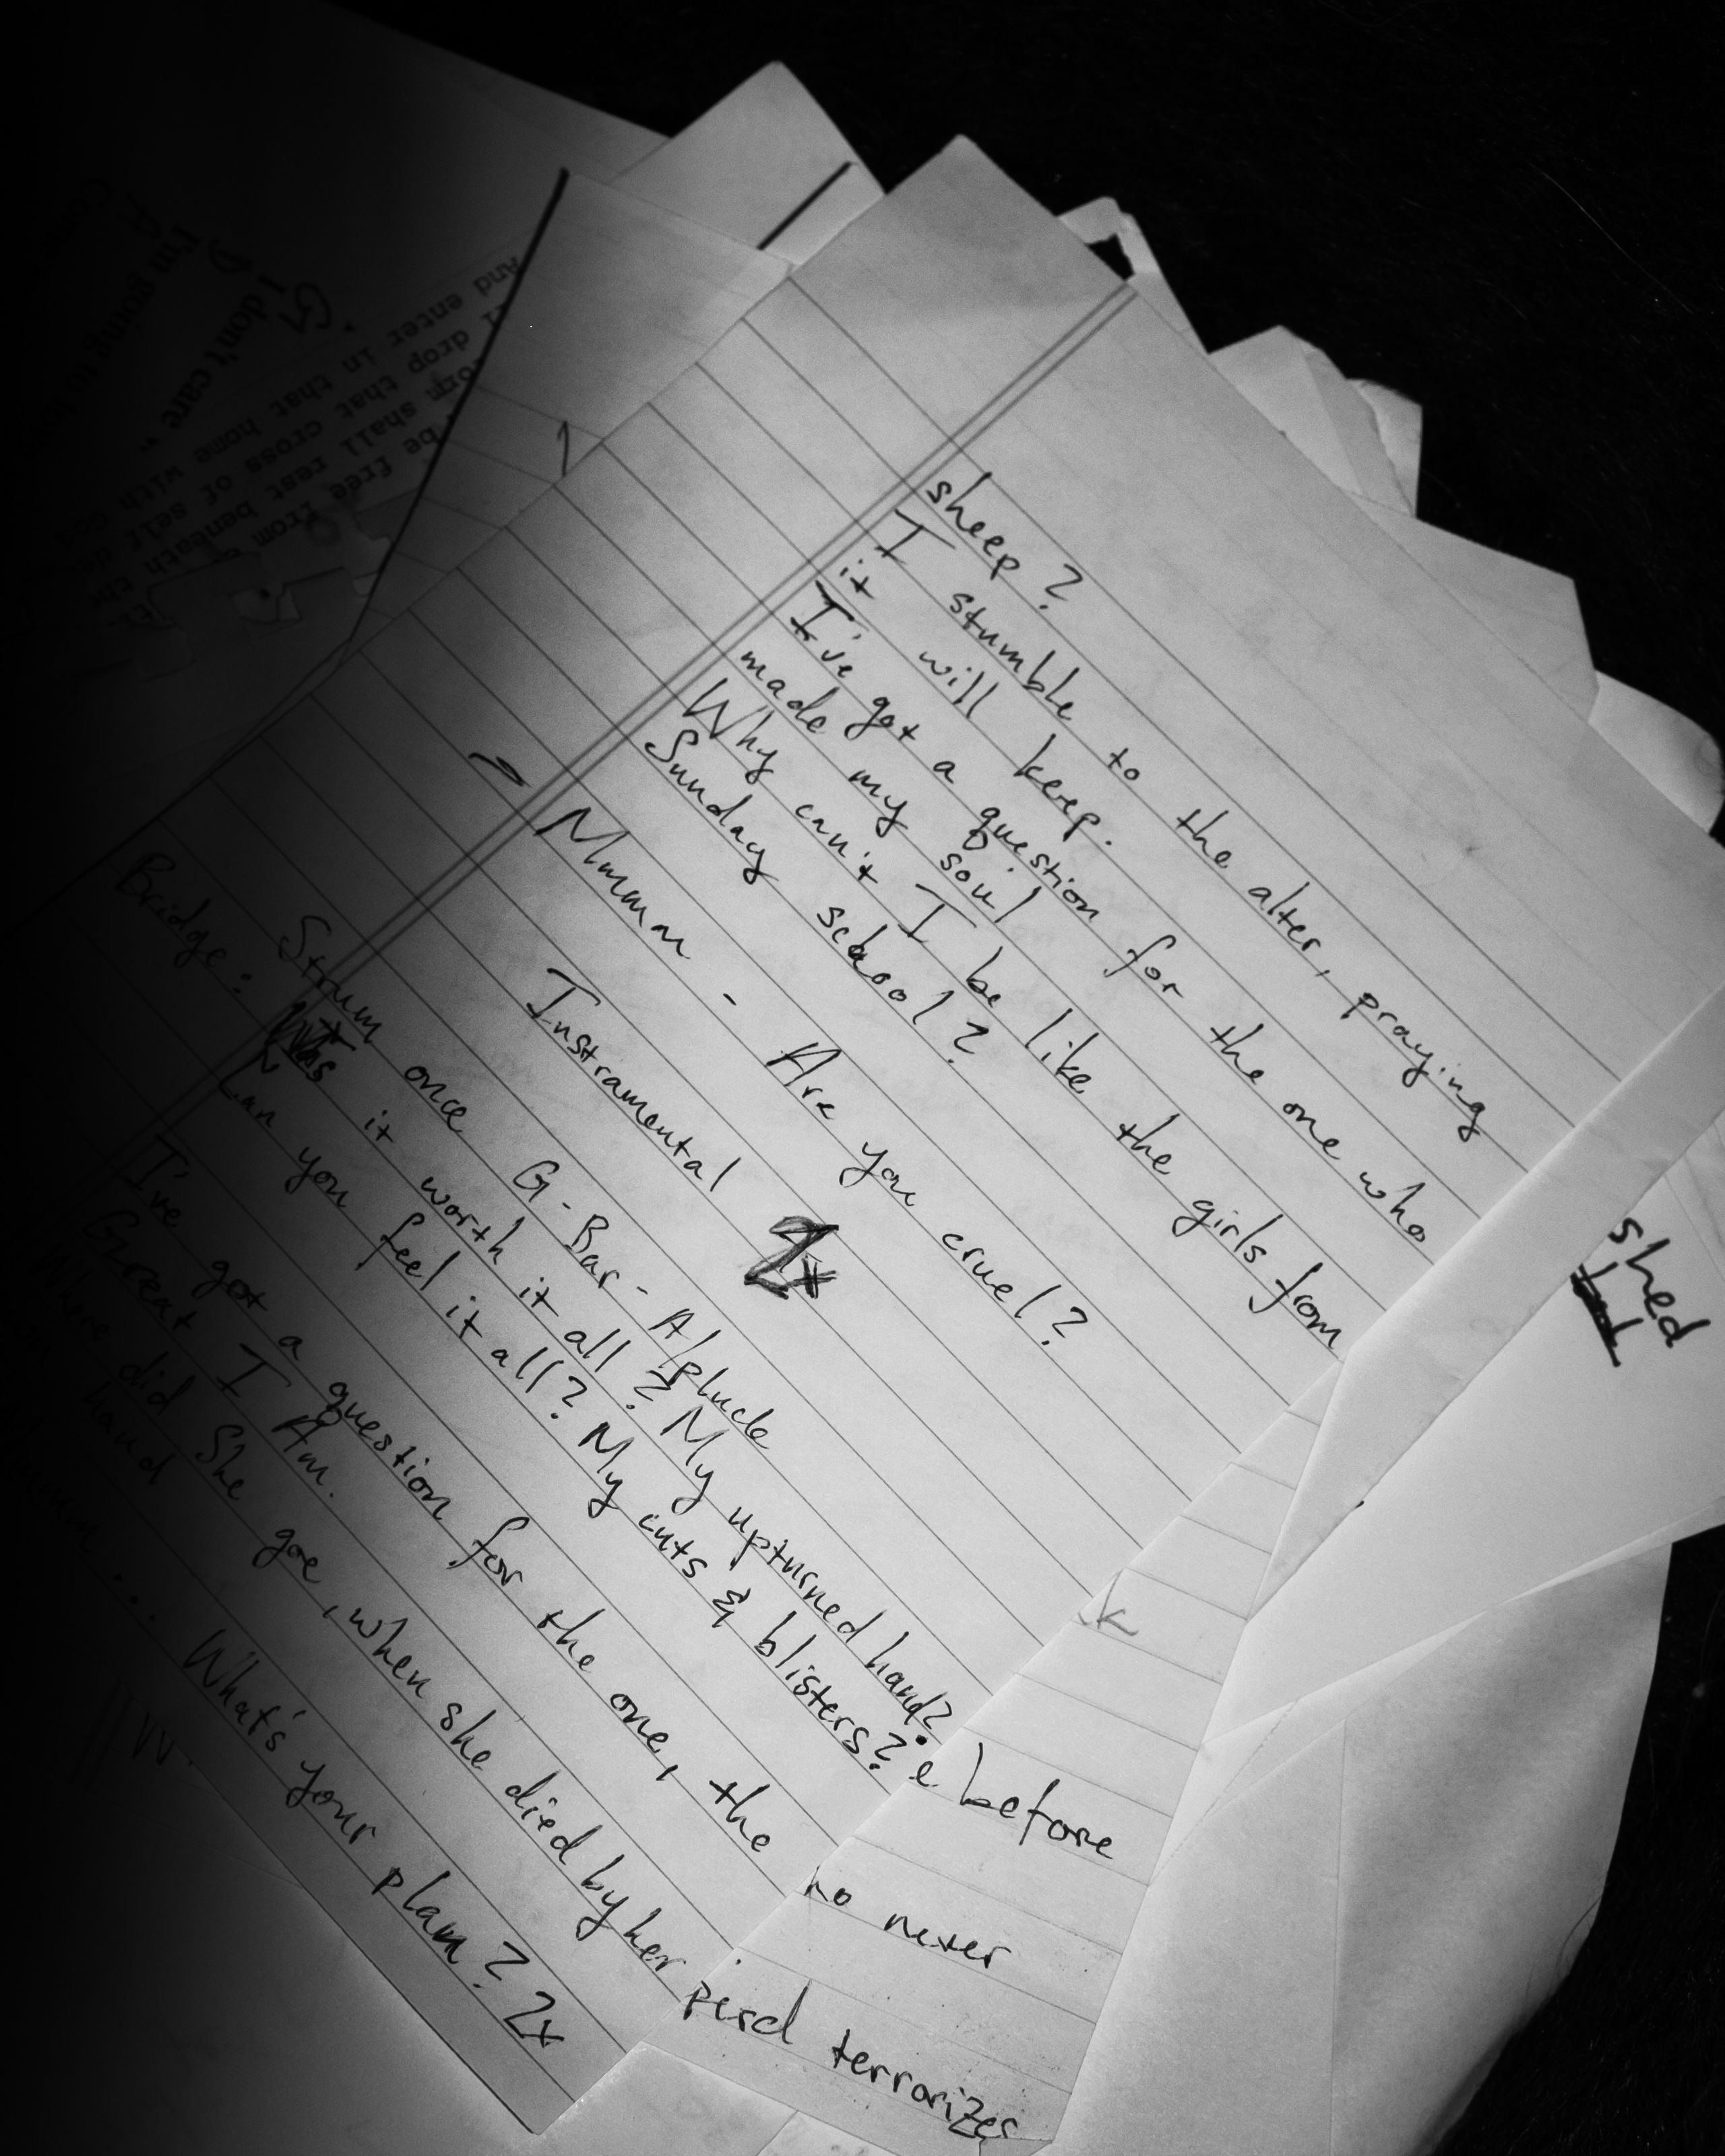 sheep?
I stumble to the alter, praying
it will keep.
I've got a question for the one who
made my soul
Why can't I be like the girls from
Sunday school?
Mmmm - Are you cruel?
Instramental 2x
Strum once G-Bar-A/pluck
Bridge: Was it worth it all? My upturned hand?
Can you feel it all? My cuts & blisters?
I've got a question for the one, the
Great I Am.
Where did she goe, when she died by her
hand
What's your plan? 2x
shed
k
e before
no never
terrorizes
I'm going to
I don't care
G
And enter in that home with
drop that cross of self
shall rest beneath the
be free from